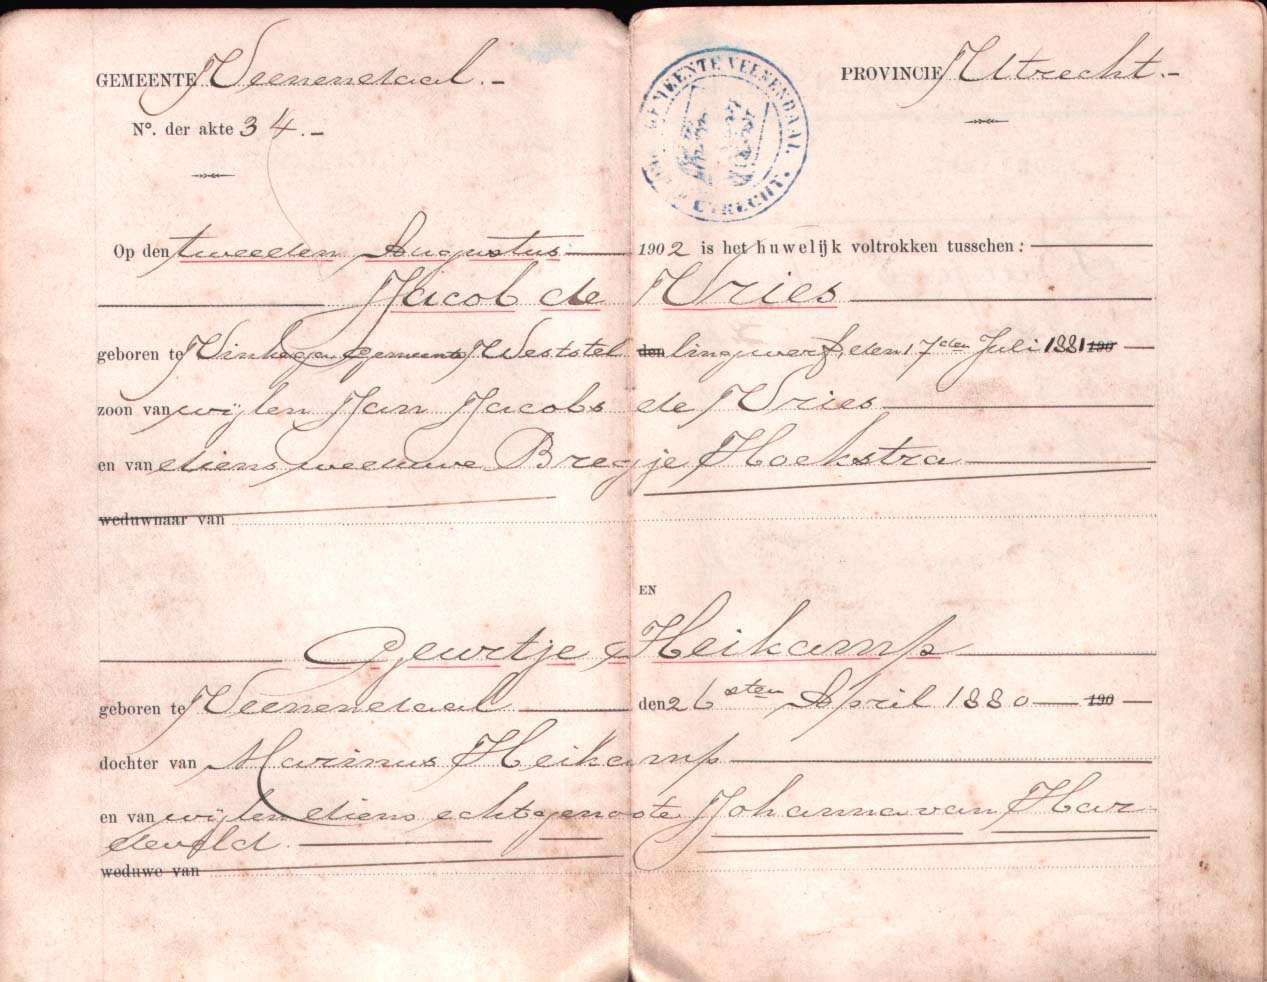 GEMEENTE Veenendaal.- PROVINCIE Utrecht.-
N°. der akte 34.-
GEMEENTE VEENENDAAL.
UTRECHT.
Op den tweeden Augustus 1902 is het huwelijk voltrokken tusschen:
Jacob de Vries
geboren te Vinkega gemeente Weststel den lingwerf, den 17den Juli 1881 190
zoon van wijlen Jan Jacobs de Vries
en van diens weduwe Bregje Hoekstra
weduwnaar van
EN
Geurtje Heikamp
geboren te Veenendaal den 26sten April 1880 190
dochter van Marinus Heikamp
en van wijlen diens echtgenoote Johanna van Har-
develd
weduwe van